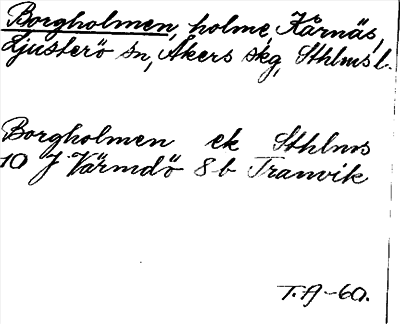 Borgholmen, holme, Kårnäs,
Ljusterö sn, Åkers skg, Sthlms l.
Borgholmen ek Sthlms
10 J Värmdö 8b Tranvik
T.A-60.